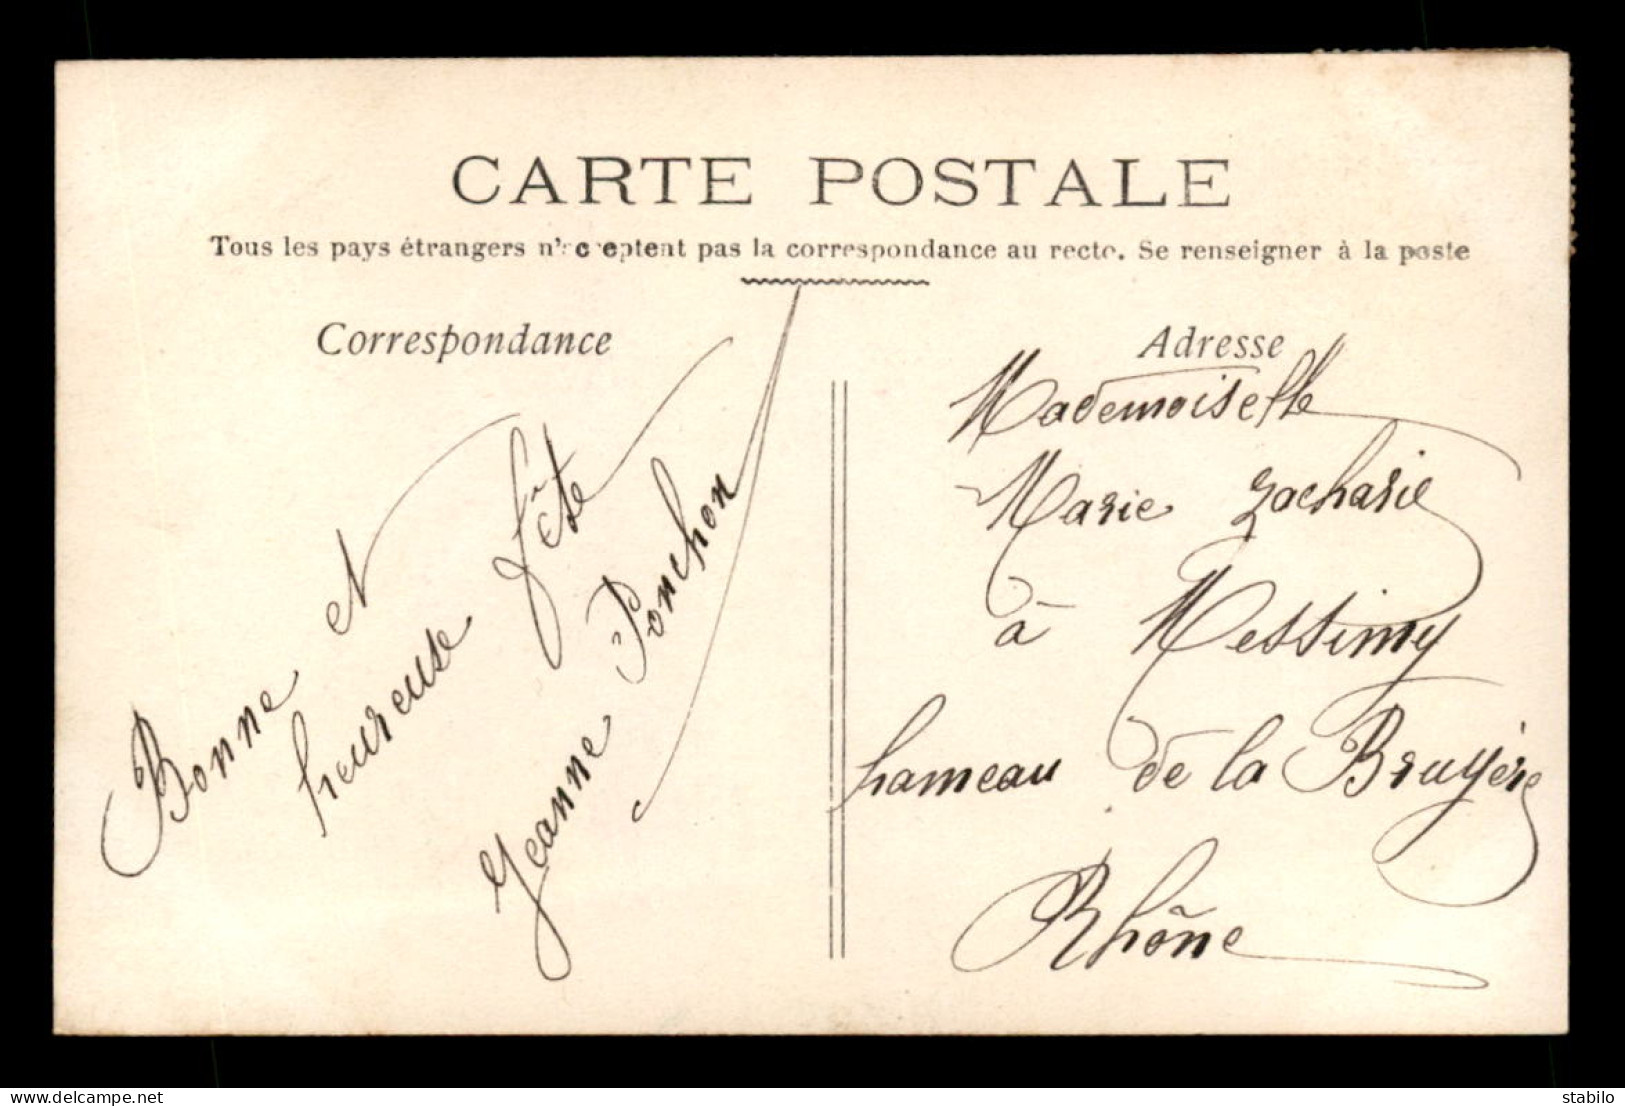 CARTE POSTALE
Tous les pays étrangers n'acceptent pas la correspondance au recto. Se renseigner à la poste
Correspondance
Bonne et
heureuse fête
Jeanne Ponchon
Adresse
Mademoiselle
Marie Zacharie
à Messimy
hameau de la Bruyère
Rhône
delcampe.net
stabilo